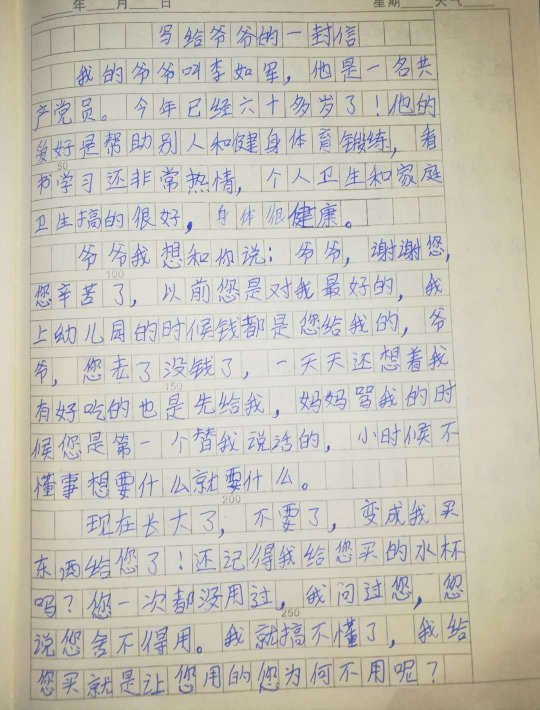 年 月 日 星期 天气
写给爷爷的一封信
我的爷爷叫李如军，他是一名共
产党员。今年已经六十多岁了！他的
爱好是帮助别人和健身体育锻练，看
书学习还非常热情，个人卫生和家庭
卫生搞的很好，身体很健康。
爷爷我想和你说：爷爷，谢谢您，
100
您辛苦了，以前您是对我最好的，我
上幼儿园的时候钱都是您给我的，爷
爷，您老了没钱了，一天天还想着我
150
有好吃的也是先给我，妈妈骂我的时
候您是第一个替我说话的，小时候不
懂事想要什么就要什么。
200
现在长大了，不要了，变成我买
东西给您了！还记得我给您买的水杯
吗？您一次都没用过，我问过您，您
250
说您舍不得用。我就搞不懂了，我给
您买就是让您用的您为何不用呢？